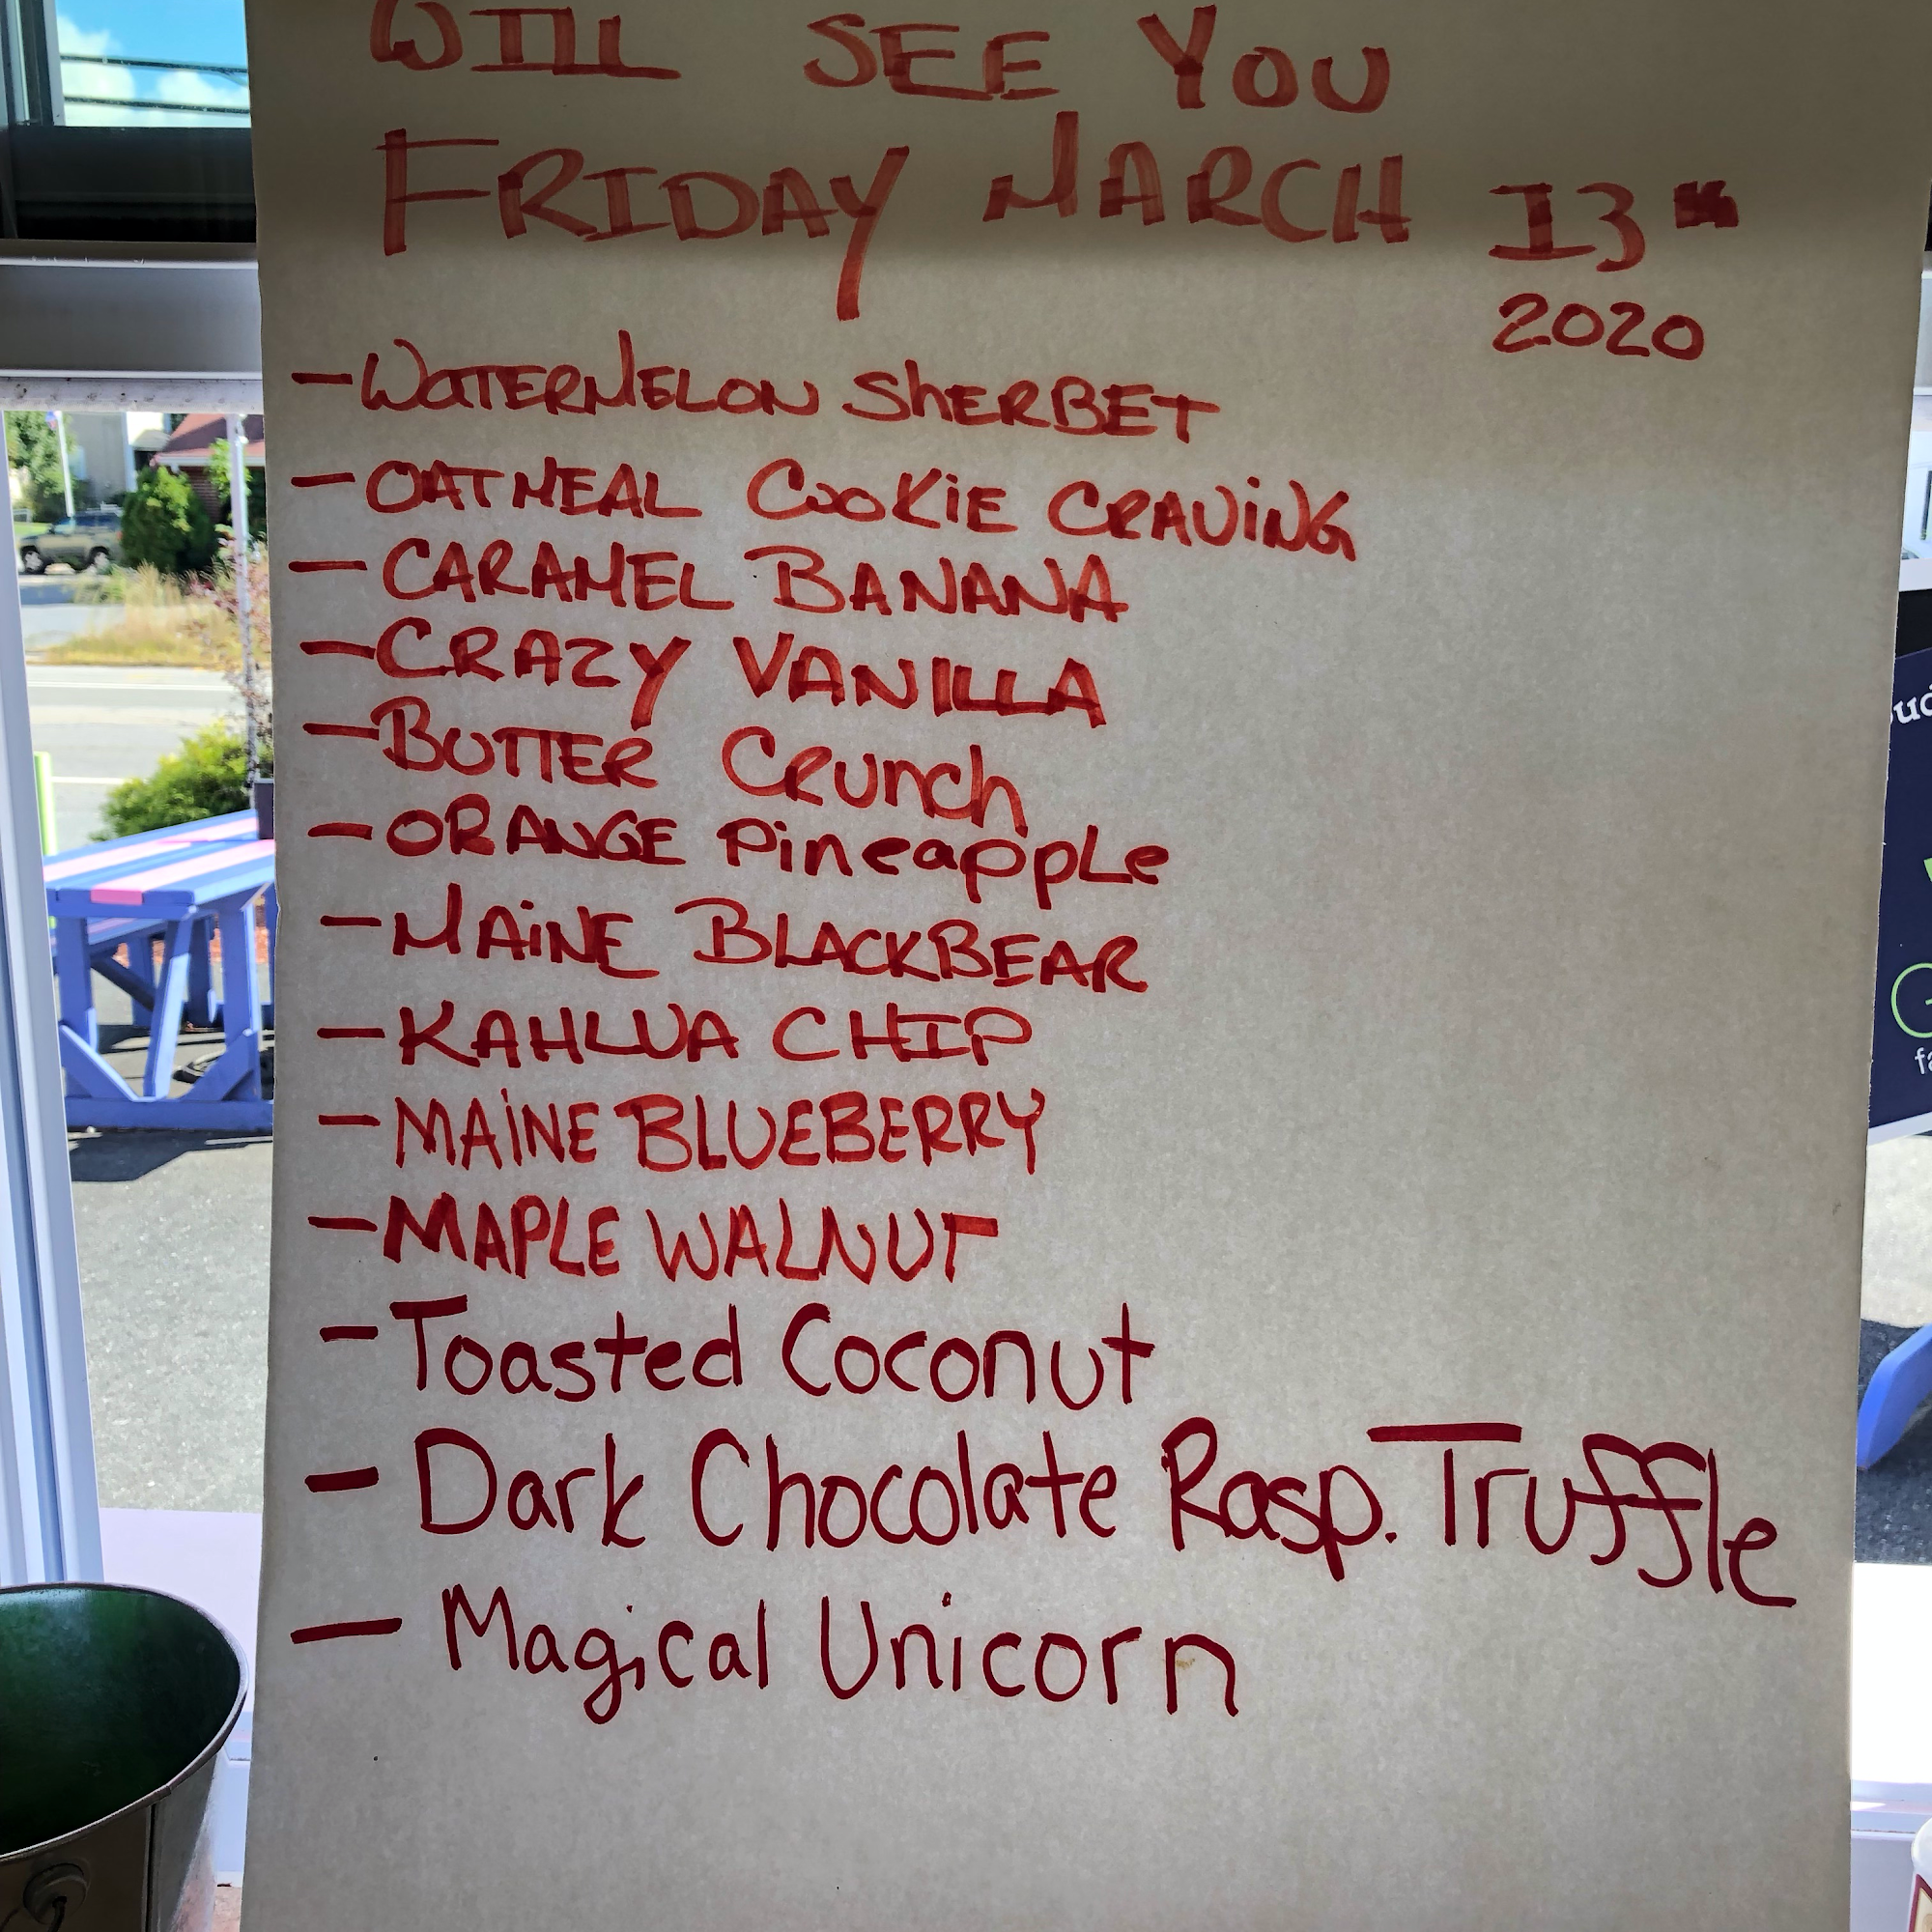 WILL SEE YOU
FRIDAY MARCH 13th
2020
- WATERMELON SHERBET
- OATMEAL COOKIE CRAVING
- CARAMEL BANANA
- CRAZY VANILLA
- BUTTER CRUNCH
- ORANGE Pineapple
- MAINE BLACKBEAR
- KAHLUA CHIP
- MAINE BLUEBERRY
- MAPLE WALNUT
- Toasted Coconut
- Dark Chocolate Rasp. Truffle
- Magical Unicorn